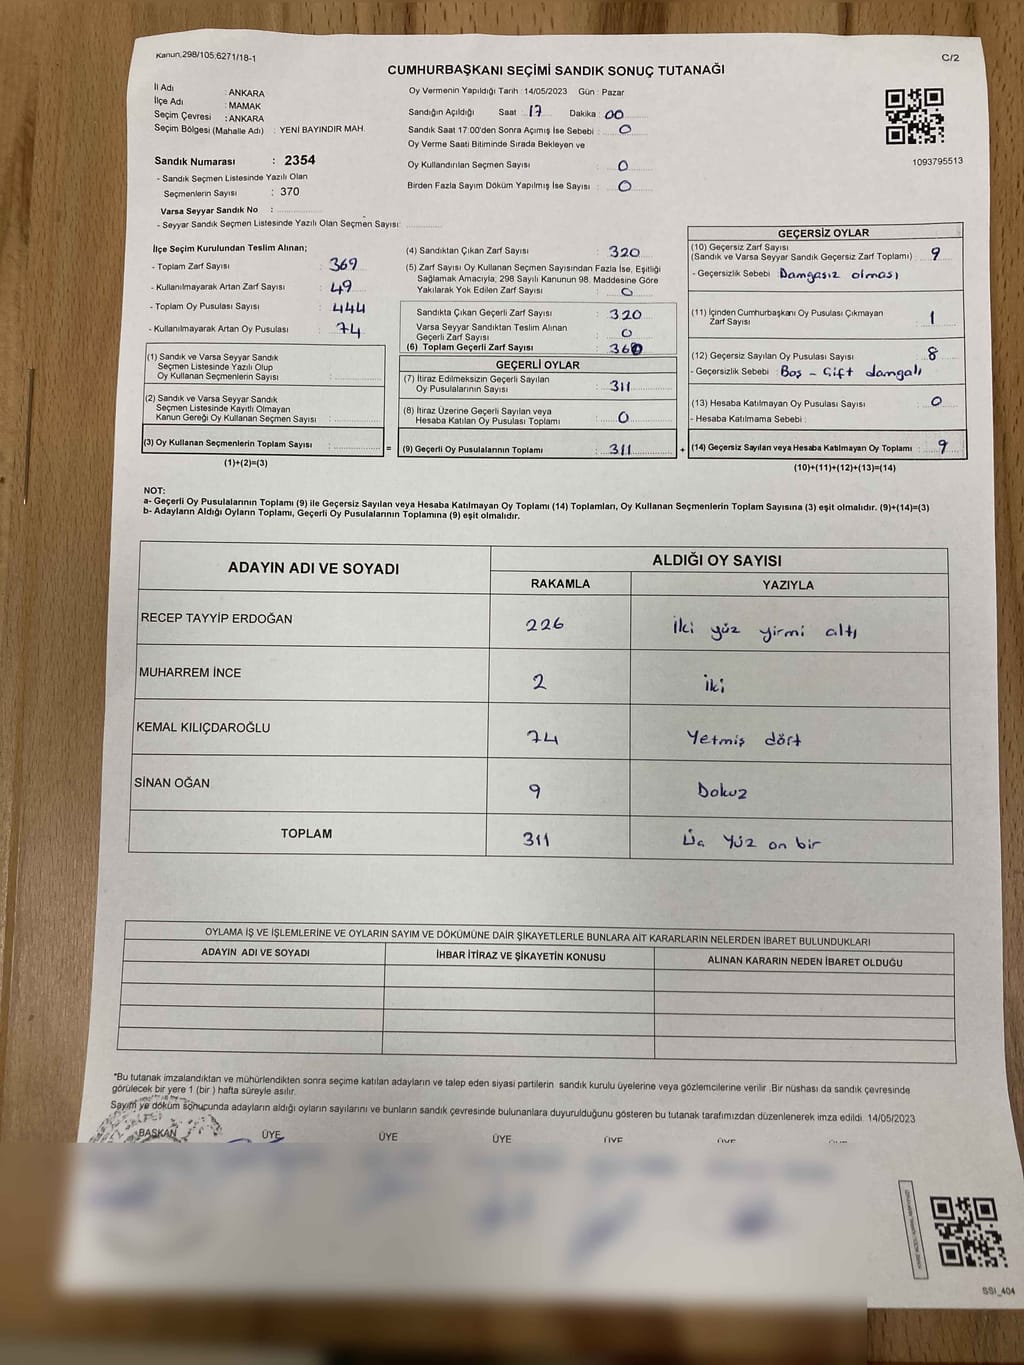 Kanun,298/105,6271/18-1
C/2
CUMHURBAŞKANI SEÇİMİ SANDIK SONUÇ TUTANAĞI
İl Adı : ANKARA
İlçe Adı : MAMAK
Seçim Çevresi : ANKARA
Seçim Bölgesi (Mahalle Adı) : YENİ BAYINDIR MAH.
Sandık Numarası : 2354
- Sandık Seçmen Listesinde Yazılı Olan
Seçmenlerin Sayısı : 370
Varsa Seyyar Sandık No :
- Seyyar Sandık Seçmen Listesinde Yazılı Olan Seçmen Sayısı:
Oy Vermenin Yapıldığı Tarih : 14/05/2023 Gün : Pazar
Sandığın Açıldığı Saat : 17 Dakika : 00
Sandık Saat 17:00'den Sonra Açımış İse Sebebi : 0
Oy Verme Saati Bitiminde Sırada Bekleyen ve
Oy Kullandırılan Seçmen Sayısı : 0
Birden Fazla Sayım Döküm Yapılmış İse Sayısı : 0
1093795513
İlçe Seçim Kurulundan Teslim Alınan;
- Toplam Zarf Sayısı : 369
- Kullanılmayarak Artan Zarf Sayısı : 49
- Toplam Oy Pusulası Sayısı : 444
- Kullanılmayarak Artan Oy Pusulası : 74
(1) Sandık ve Varsa Seyyar Sandık
Seçmen Listesinde Yazılı Olup
Oy Kullanan Seçmenlerin Sayısı :
(2) Sandık ve Varsa Seyyar Sandık
Seçmen Listesinde Kayıtlı Olmayan
Kanun Gereği Oy Kullanan Seçmen Sayısı :
(3) Oy Kullanan Seçmenlerin Toplam Sayısı : =
(1)+(2)=(3)
(4) Sandıktan Çıkan Zarf Sayısı : 320
(5) Zarf Sayısı Oy Kullanan Seçmen Sayısından Fazla İse, Eşitliği
Sağlamak Amacıyla, 298 Sayılı Kanunun 98. Maddesine Göre
Yakılarak Yok Edilen Zarf Sayısı : 0
Sandıkta Çıkan Geçerli Zarf Sayısı : 320
Varsa Seyyar Sandıktan Teslim Alınan
Geçerli Zarf Sayısı : 0
(6) Toplam Geçerli Zarf Sayısı :
GEÇERLİ OYLAR
(7) İtiraz Edilmeksizin Geçerli Sayılan
Oy Pusulalarının Sayısı : 311
(8) İtiraz Üzerine Geçerli Sayılan veya
Hesaba Katılan Oy Pusulası Toplamı : 0
(9) Geçerli Oy Pusulalarının Toplamı : 311 +
GEÇERSİZ OYLAR
(10) Geçersiz Zarf Sayısı
(Sandık ve Varsa Seyyar Sandık Geçersiz Zarf Toplamı) : 9
- Geçersizlik Sebebi : Damgasız olması
(11) İçinden Cumhurbaşkanı Oy Pusulası Çıkmayan
Zarf Sayısı : 1
(12) Geçersiz Sayılan Oy Pusulası Sayısı : 8
- Geçersizlik Sebebi : Boş - Çift damgalı
(13) Hesaba Katılmayan Oy Pusulası Sayısı : 0
- Hesaba Katılmama Sebebi :
(14) Geçersiz Sayılan veya Hesaba Katılmayan Oy Toplamı : 9
(10)+(11)+(12)+(13)=(14)
NOT:
a- Geçerli Oy Pusulalarının Toplamı (9) ile Geçersiz Sayılan veya Hesaba Katılmayan Oy Toplamı (14) Toplamları, Oy Kullanan Seçmenlerin Toplam Sayısına (3) eşit olmalıdır. (9)+(14)=(3)
b- Adayların Aldığı Oyların Toplamı, Geçerli Oy Pusulalarının Toplamına (9) eşit olmalıdır.
ADAYIN ADI VE SOYADI
ALDIĞI OY SAYISI
RAKAMLA YAZIYLA
RECEP TAYYİP ERDOĞAN 226 İki yüz yirmi altı
MUHARREM İNCE 2 İki
KEMAL KILIÇDAROĞLU 74 Yetmiş dört
SİNAN OĞAN 9 Dokuz
TOPLAM 311 Üç Yüz on bir
OYLAMA İŞ VE İŞLEMLERİNE VE OYLARIN SAYIM VE DÖKÜMÜNE DAİR ŞİKAYETLERLE BUNLARA AİT KARARLARIN NELERDEN İBARET BULUNDUKLARI
ADAYIN ADI VE SOYADI İHBAR İTİRAZ VE ŞİKAYETİN KONUSU ALINAN KARARIN NEDEN İBARET OLDUĞU
*Bu tutanak imzalandıktan ve mühürlendikten sonra seçime katılan adayların ve talep eden siyasi partilerin sandık kurulu üyelerine veya gözlemcilerine verilir. Bir nüshası da sandık çevresinde
görülecek bir yere 1 (bir ) hafta süreyle asılır.
Sayım ve döküm sonucunda adayların aldığı oyların sayılarını ve bunların sandık çevresinde bulunanlara duyurulduğunu gösteren bu tutanak tarafımızdan düzenlenerek imza edildi. 14/05/2023
BAŞKAN ÜYE ÜYE ÜYE ÜYE ÜYE
SSI_404